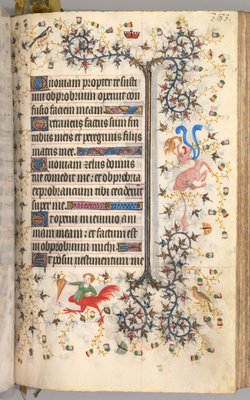 Quoniam propter te susti
nui obprobrium operuit con
fusio faciem meam.
Extraneus factus sum fra
tribus meis et peregrinus filiis
matris mee.
Quoniam zelus domus
tue comedit me : et obprobria
exprobrancium tibi ceciderūt
super me.
Et operui in ieiunio ani
mam meam : et factum est
in obprobrium michi.
Et posui vestimentum me